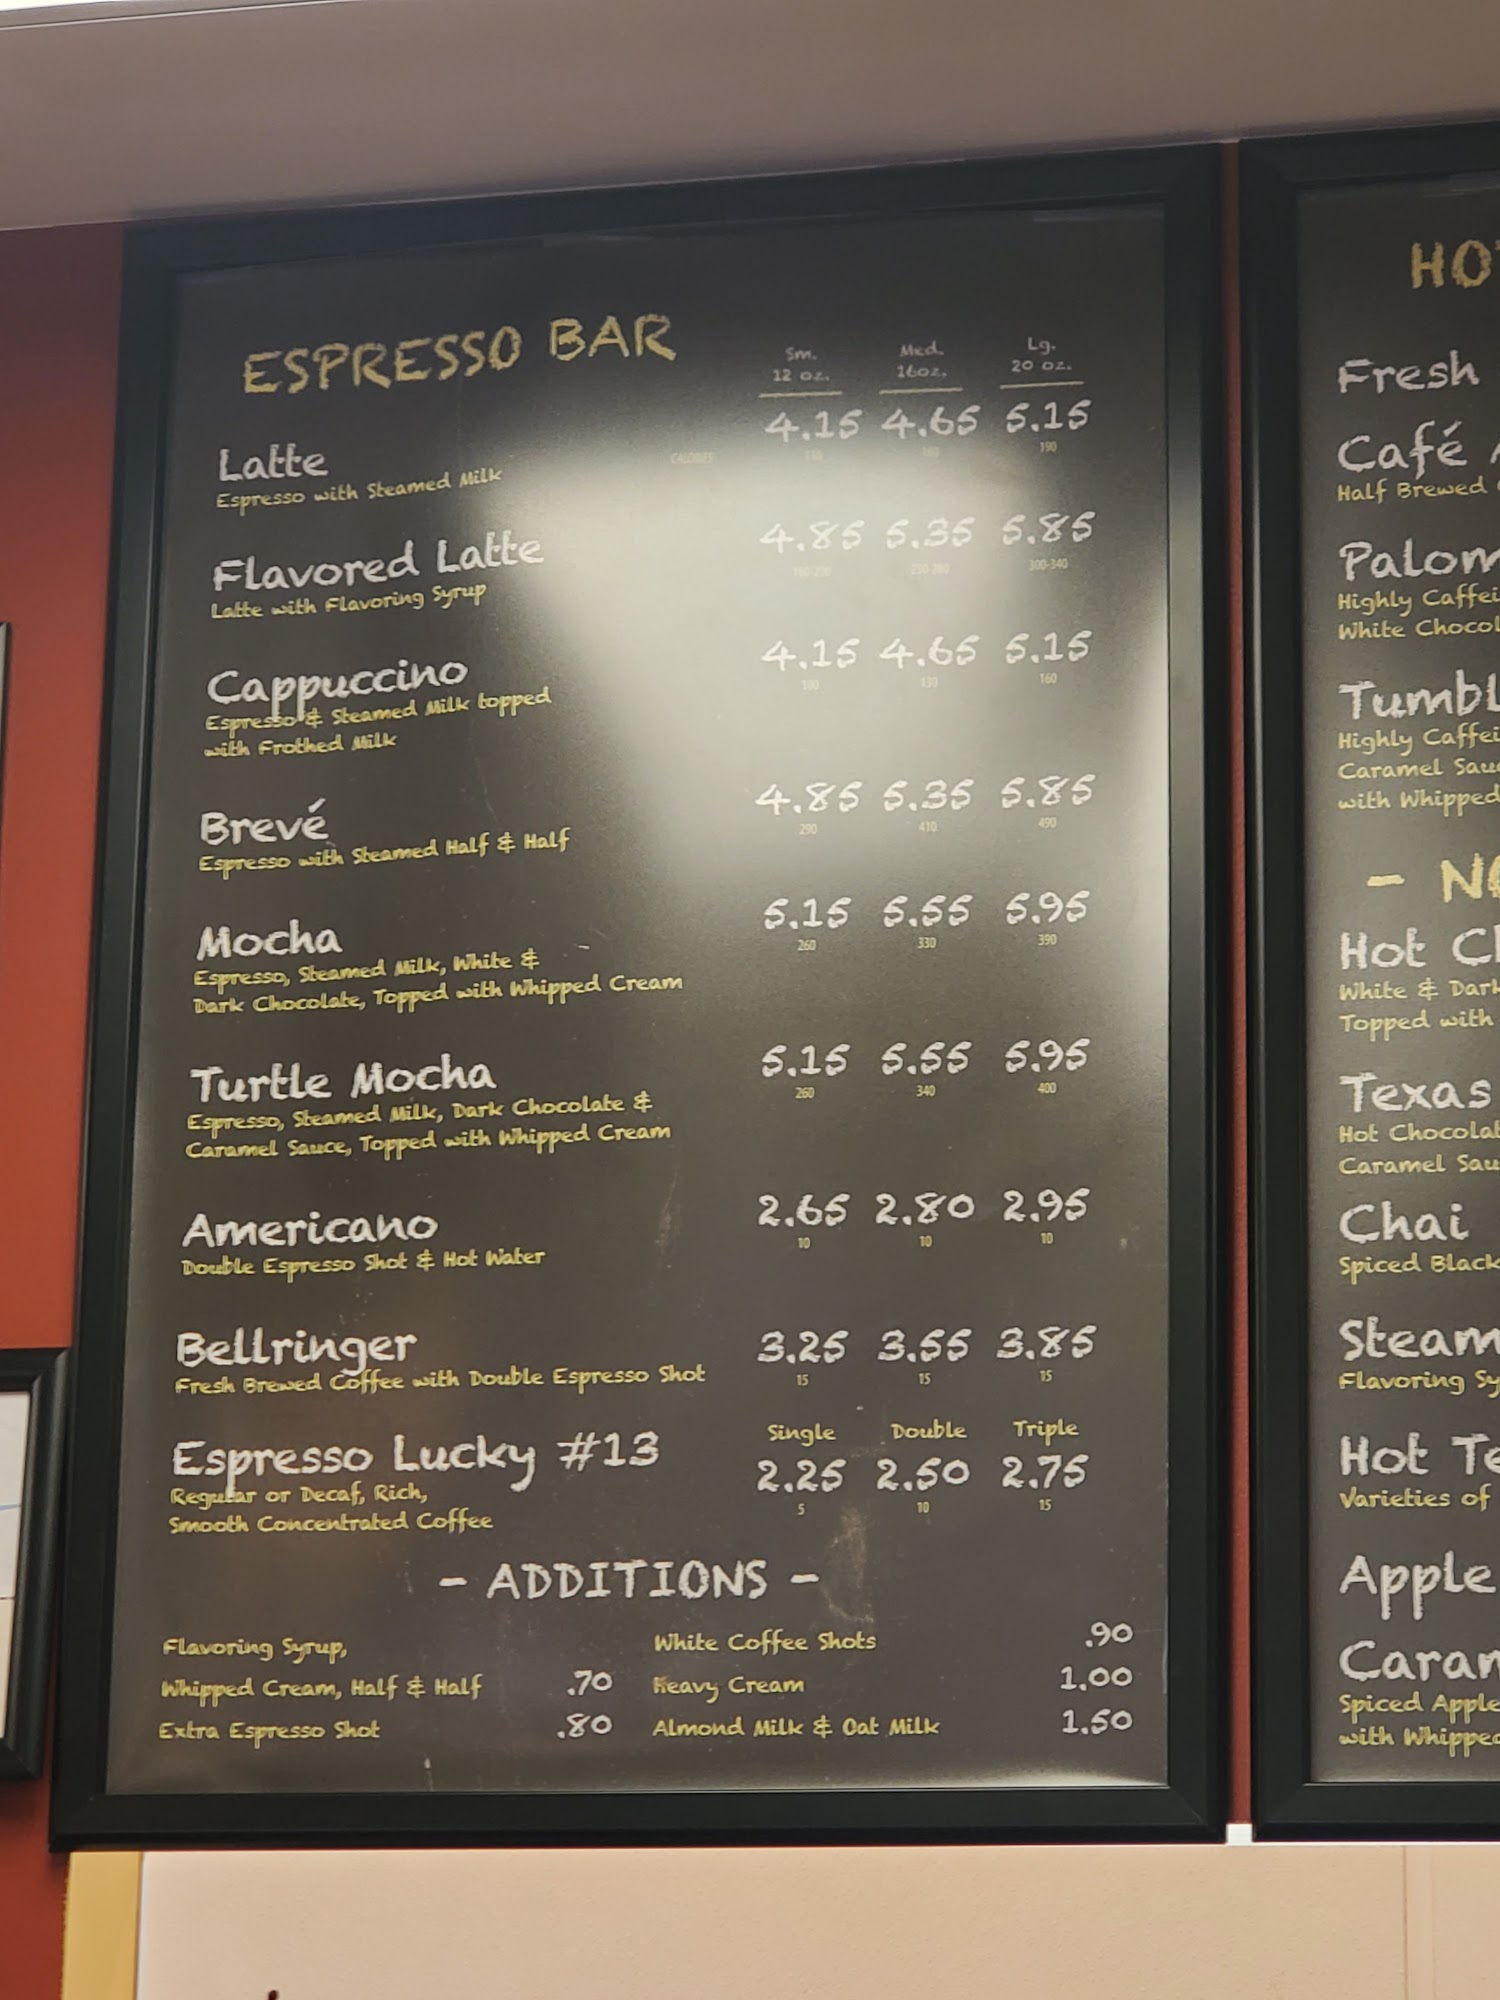 ESPRESSO BAR
Sm. Med. Lg.
12 oz. 16oz. 20 oz.
Latte 4.15 4.65 5.15
Espresso with Steamed Milk CALORIES 190
Flavored Latte 4.85 5.35 5.85
Latte with Flavoring Syrup 300-340
Cappuccino 4.15 4.65 5.15
Espresso & Steamed Milk topped 100 130 160
with Frothed Milk
Brevé 4.85 5.35 5.85
Espresso with Steamed Half & Half 290 410 490
Mocha 5.15 5.55 5.95
Espresso, Steamed Milk, White & 260 330 390
Dark Chocolate, Topped with Whipped Cream
Turtle Mocha 5.15 5.55 5.95
Espresso, Steamed Milk, Dark Chocolate & 260 340 400
Caramel Sauce, Topped with Whipped Cream
Americano 2.65 2.80 2.95
Double Espresso Shot & Hot Water 10 10 10
Bellringer 3.25 3.55 3.85
Fresh Brewed Coffee with Double Espresso Shot 15 15 15
Single Double Triple
Espresso Lucky #13 2.25 2.50 2.75
Regular or Decaf, Rich, 5 10 15
Smooth Concentrated Coffee
- ADDITIONS -
Flavoring Syrup,
Whipped Cream, Half & Half .70
Extra Espresso Shot .80
White Coffee Shots .90
Heavy Cream 1.00
Almond Milk & Oat Milk 1.50
HO
Fresh
Café
Half Brewed
Palom
Highly Caffei
White Chocol
Tumbl
Highly Caffei
Caramel Sau
with Whipped
- N
Hot C
White & Dark
Topped with
Texas
Hot Chocolat
Caramel Sau
Chai
Spiced Black
Steam
Flavoring Sy
Hot Te
Varieties of
Apple
Caram
Spiced Apple
with Whipped